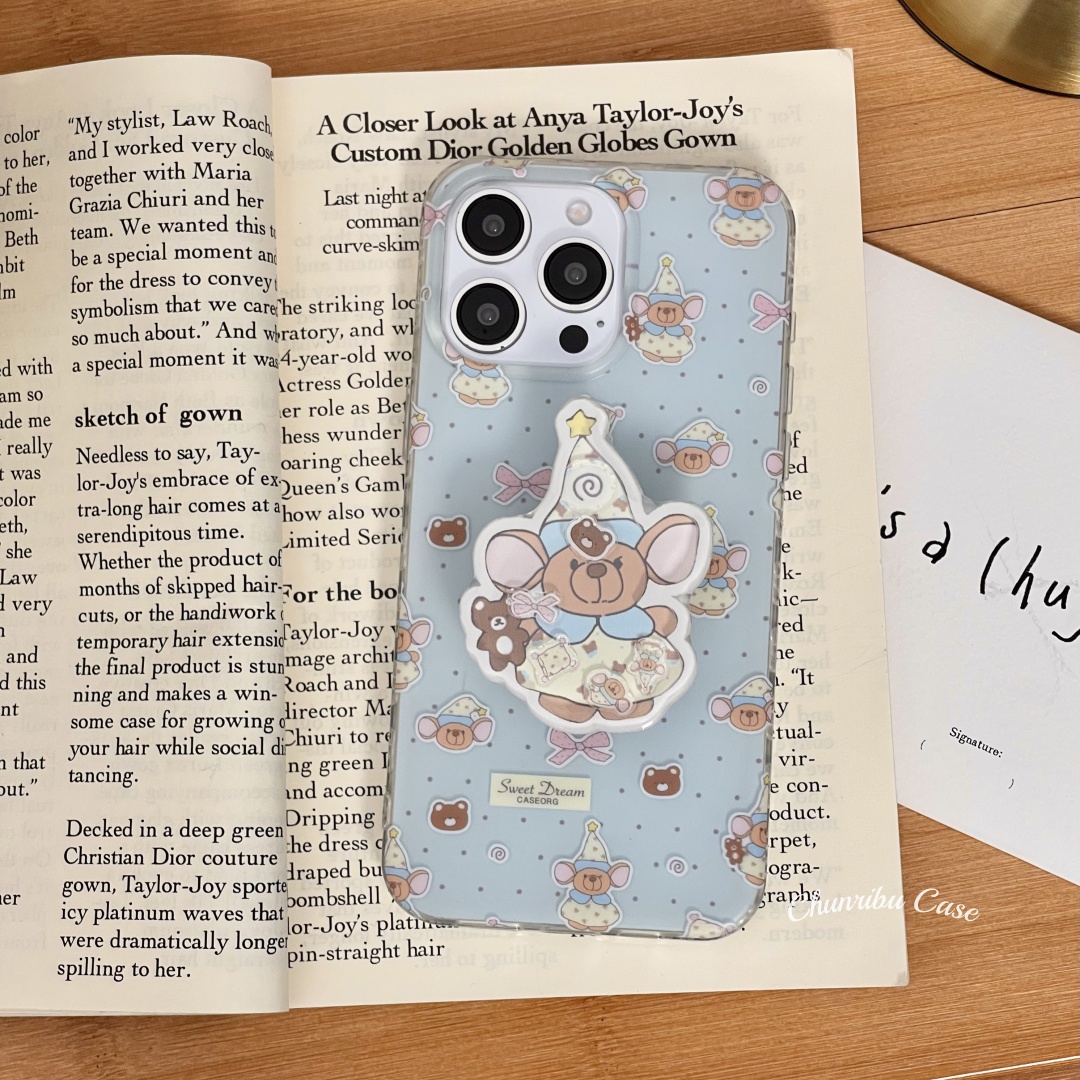 color
to her,
of the
nomi-
Beth
lm
ed with
am so
ade me
really
t was
color
eth,
she
Law
d very
and
d this
nt
n that
out."
her
"My stylist, Law Roach,
and I worked very close
together with Maria
Grazia Chiuri and her
team. We wanted this
be a special moment and
for the dress to convey
symbolism that we care
so much about." And
a special moment it was
sketch of gown
Needless to say, Tay-
lor-Joy's embrace of ex-
tra-long hair comes at a
serendipitous time.
Whether the product of
months of skipped hair-
cuts, or the handiwork
temporary hair extensio
the final product is stun
ning and makes a win-
some case for growing
your hair while social di
tancing.
Decked in a deep green
Christian Dior couture
gown, Taylor-Joy sporte
icy platinum waves that
were dramatically longer
spilling to her.
A Closer Look at Anya Taylor-Joy's
Custom Dior Golden Globes Gown
Last night at
command
curve-skim
The striking loo
ratory, and wh
4-year-old wo
Actress Golden
er role as Bet
hess wunder
oaring cheek
Queen's Gaml
how also wo
Limited Serie
For the bo
Taylor-Joy
mage archit
Roach and
director Ma
Chiuri to re
ng green
and accom
Dripping
the dress
draped bu
bombshell
lor-Joy's platinum
pin-straight hair
of
ed
he
e
k-
ic—
red
he
. "It
y
tual-
vir-
e con-
oduct.
rpet,
ogra-
graphs
Sweet Dream
CASEORG
's a
Signature:
( )
Chunribu Case